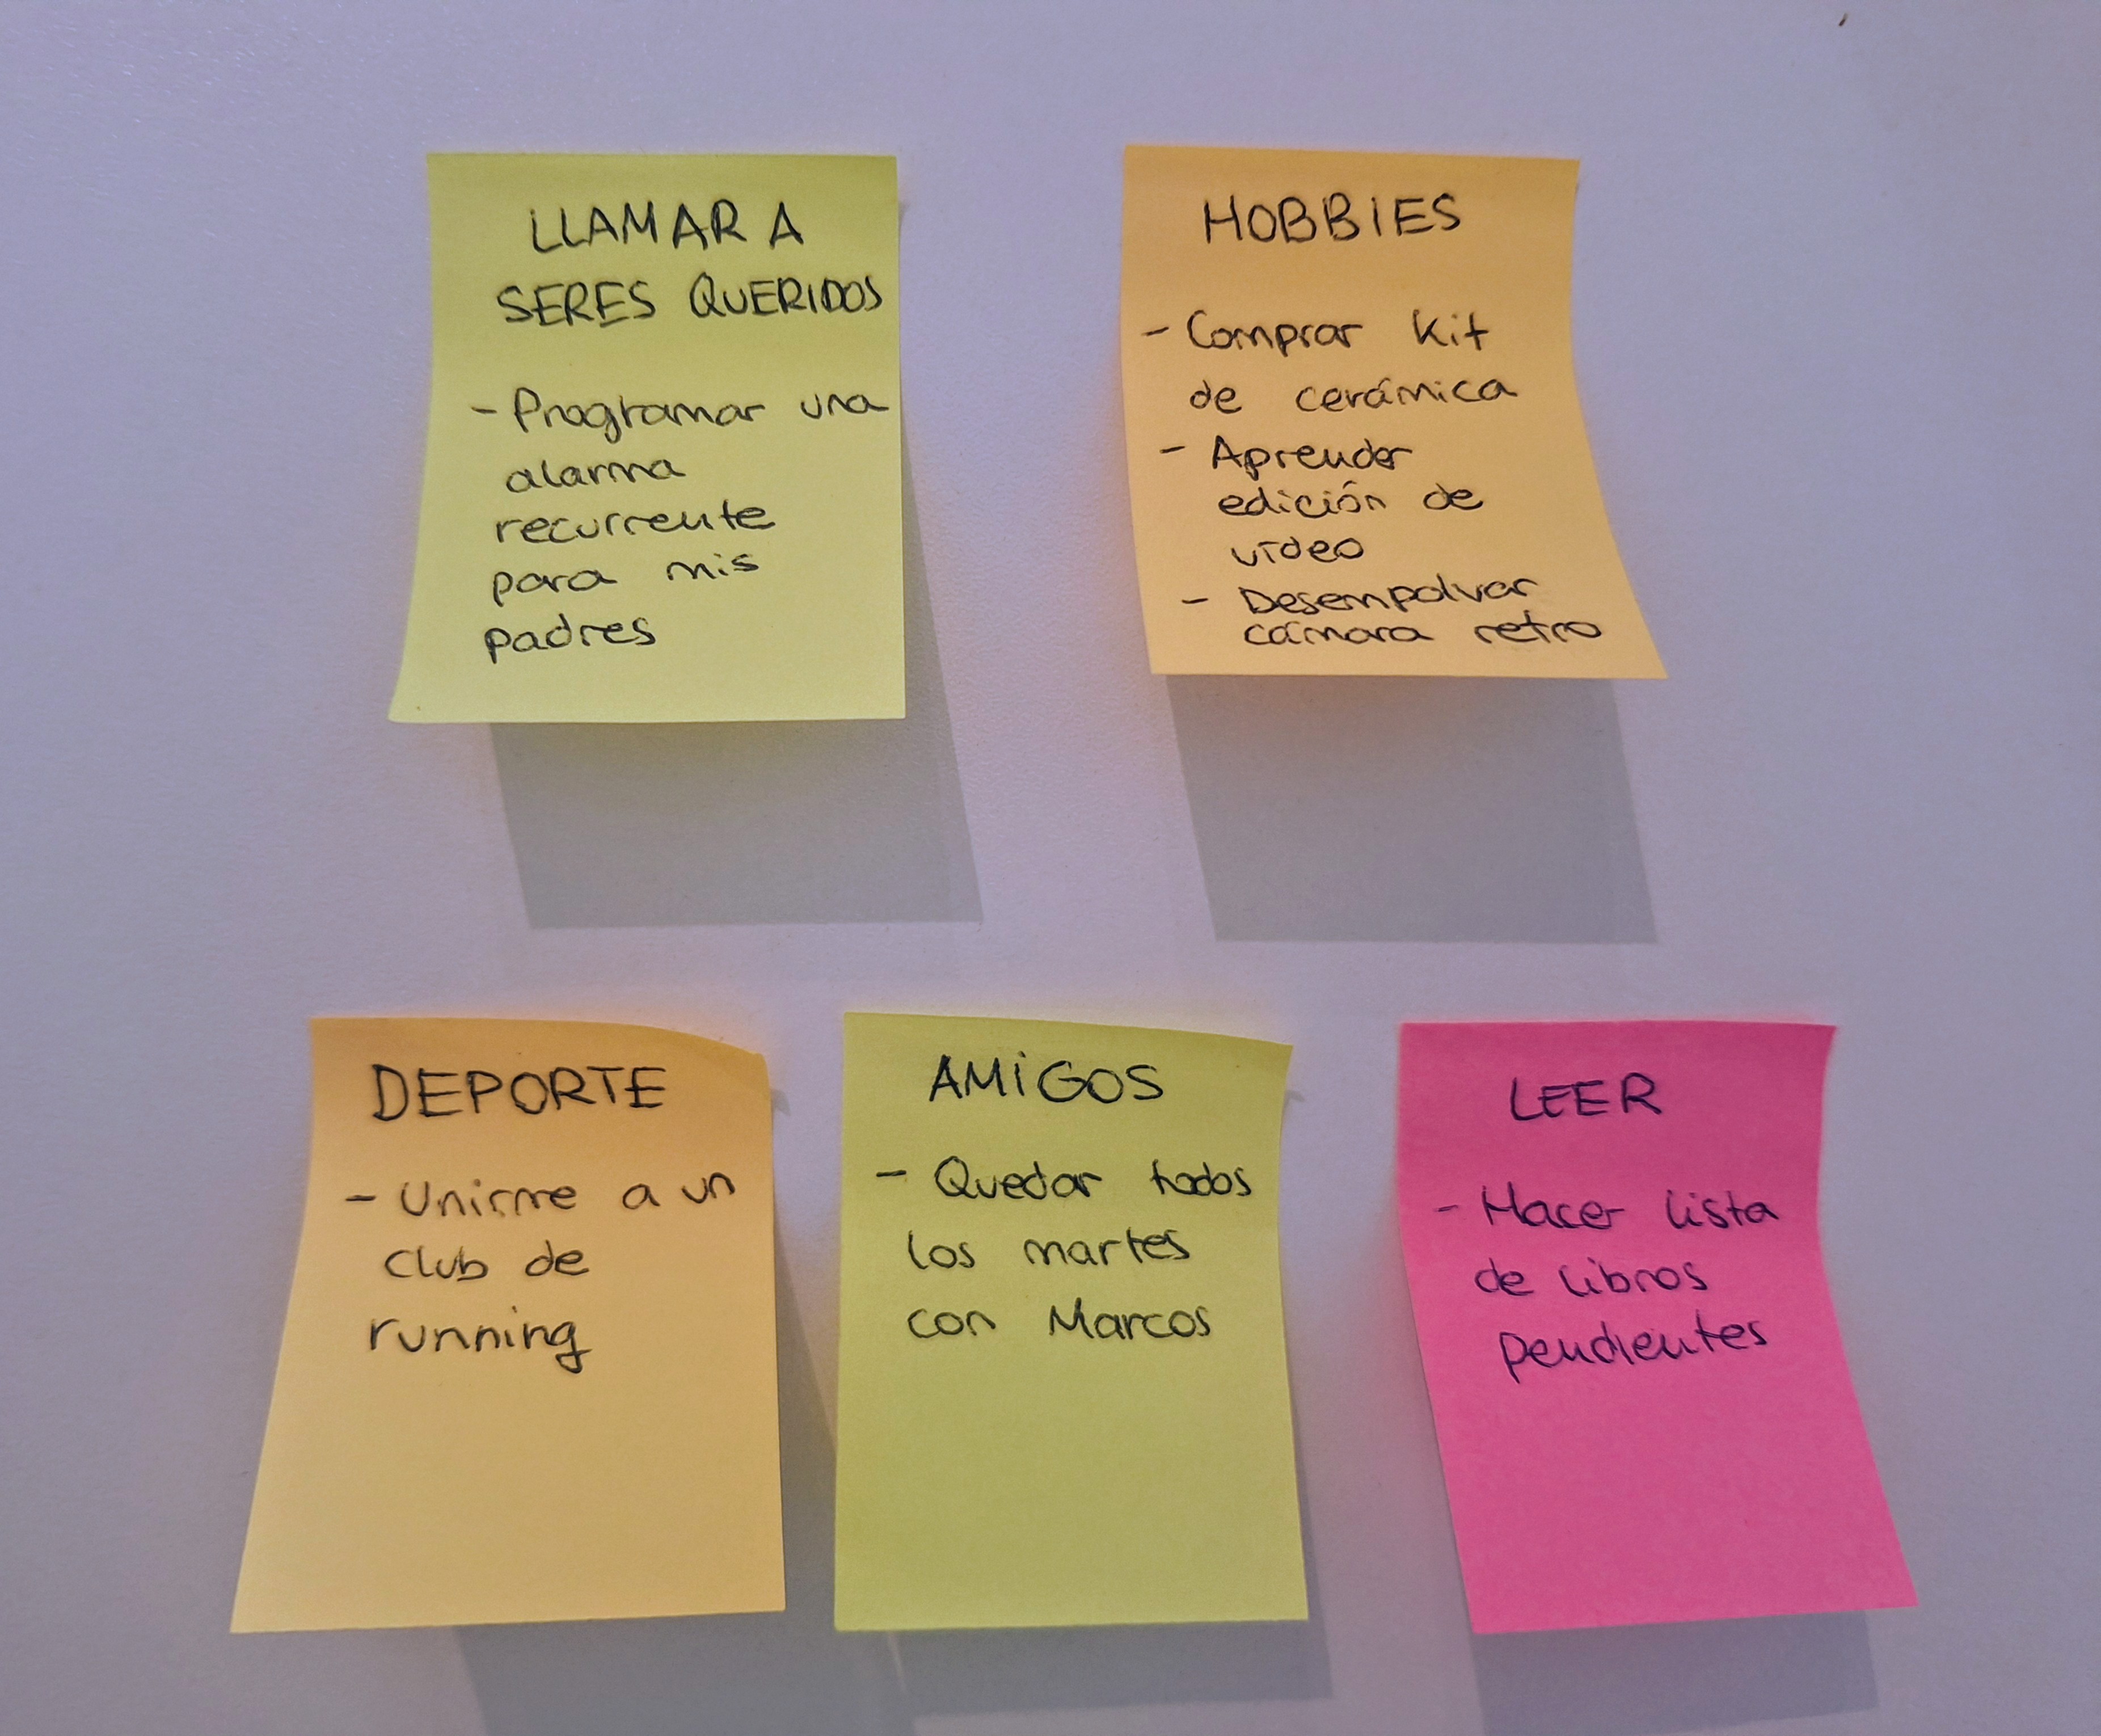 LLAMAR A
SERES QUERIDOS
- Programar una
alarma
recurrente
para mis
padres
HOBBIES
- Comprar Kit
de cerámica
- Aprender
edición de
vídeo
- Desempolvar
cámara retro
DEPORTE
- Unirme a un
club de
running
AMIGOS
- Quedar todos
los martes
con Marcos
LEER
- Hacer lista
de libros
pendientes